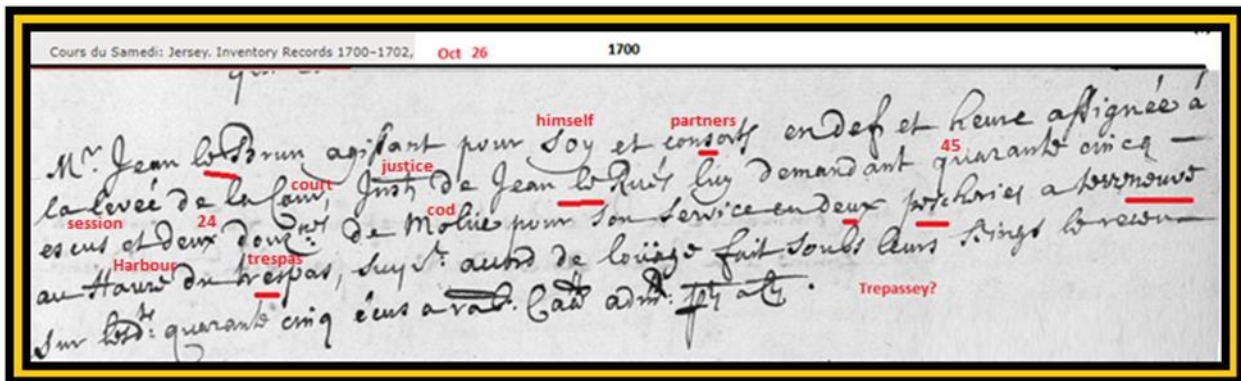 Cours du Samedi: Jersey. Inventory Records 1700–1702, Oct 26 1700
himself partners
Mr. Jean le Brun agissant pour Soy et consorts en def et heure assignée à
justice 45
la levée de la Cour, Justi de Jean le Rués luy demandant quarante cincq —
session court cod
24
escus et deux douz.nes de Molüe pour son service en deux pescheries a terreneuve
Harbour trespas
au Havre du trespas, Suyt. accord de loüage fait soubs leurs Sings le recou—
Trepassey?
Sur lesd. quarante cinq écus a rab. Caū adm.